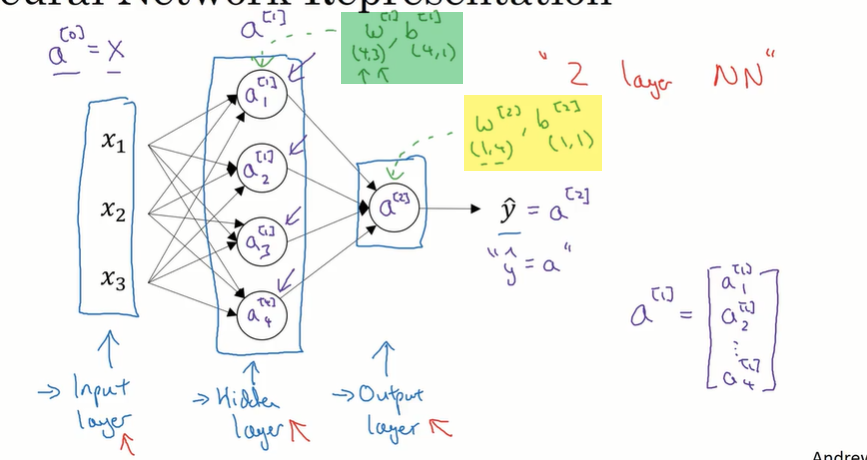 eural Network Representation
a^[0] = X
a^[1]
w^[1], b^[1]
(4,3) (4,1)
"2 layer NN"
w^[2], b^[2]
(1,4) (1,1)
x₁
x₂
x₃
a₁^[1]
a₂^[1]
a₃^[1]
a₄^[1]
a^[2]
ŷ = a^[2]
"ŷ = a"
a^[1] = [a₁^[1]
a₂^[1]
⋮
a₄^[1]]
→ Input layer
→ Hidden layer
→ Output layer
Andrew